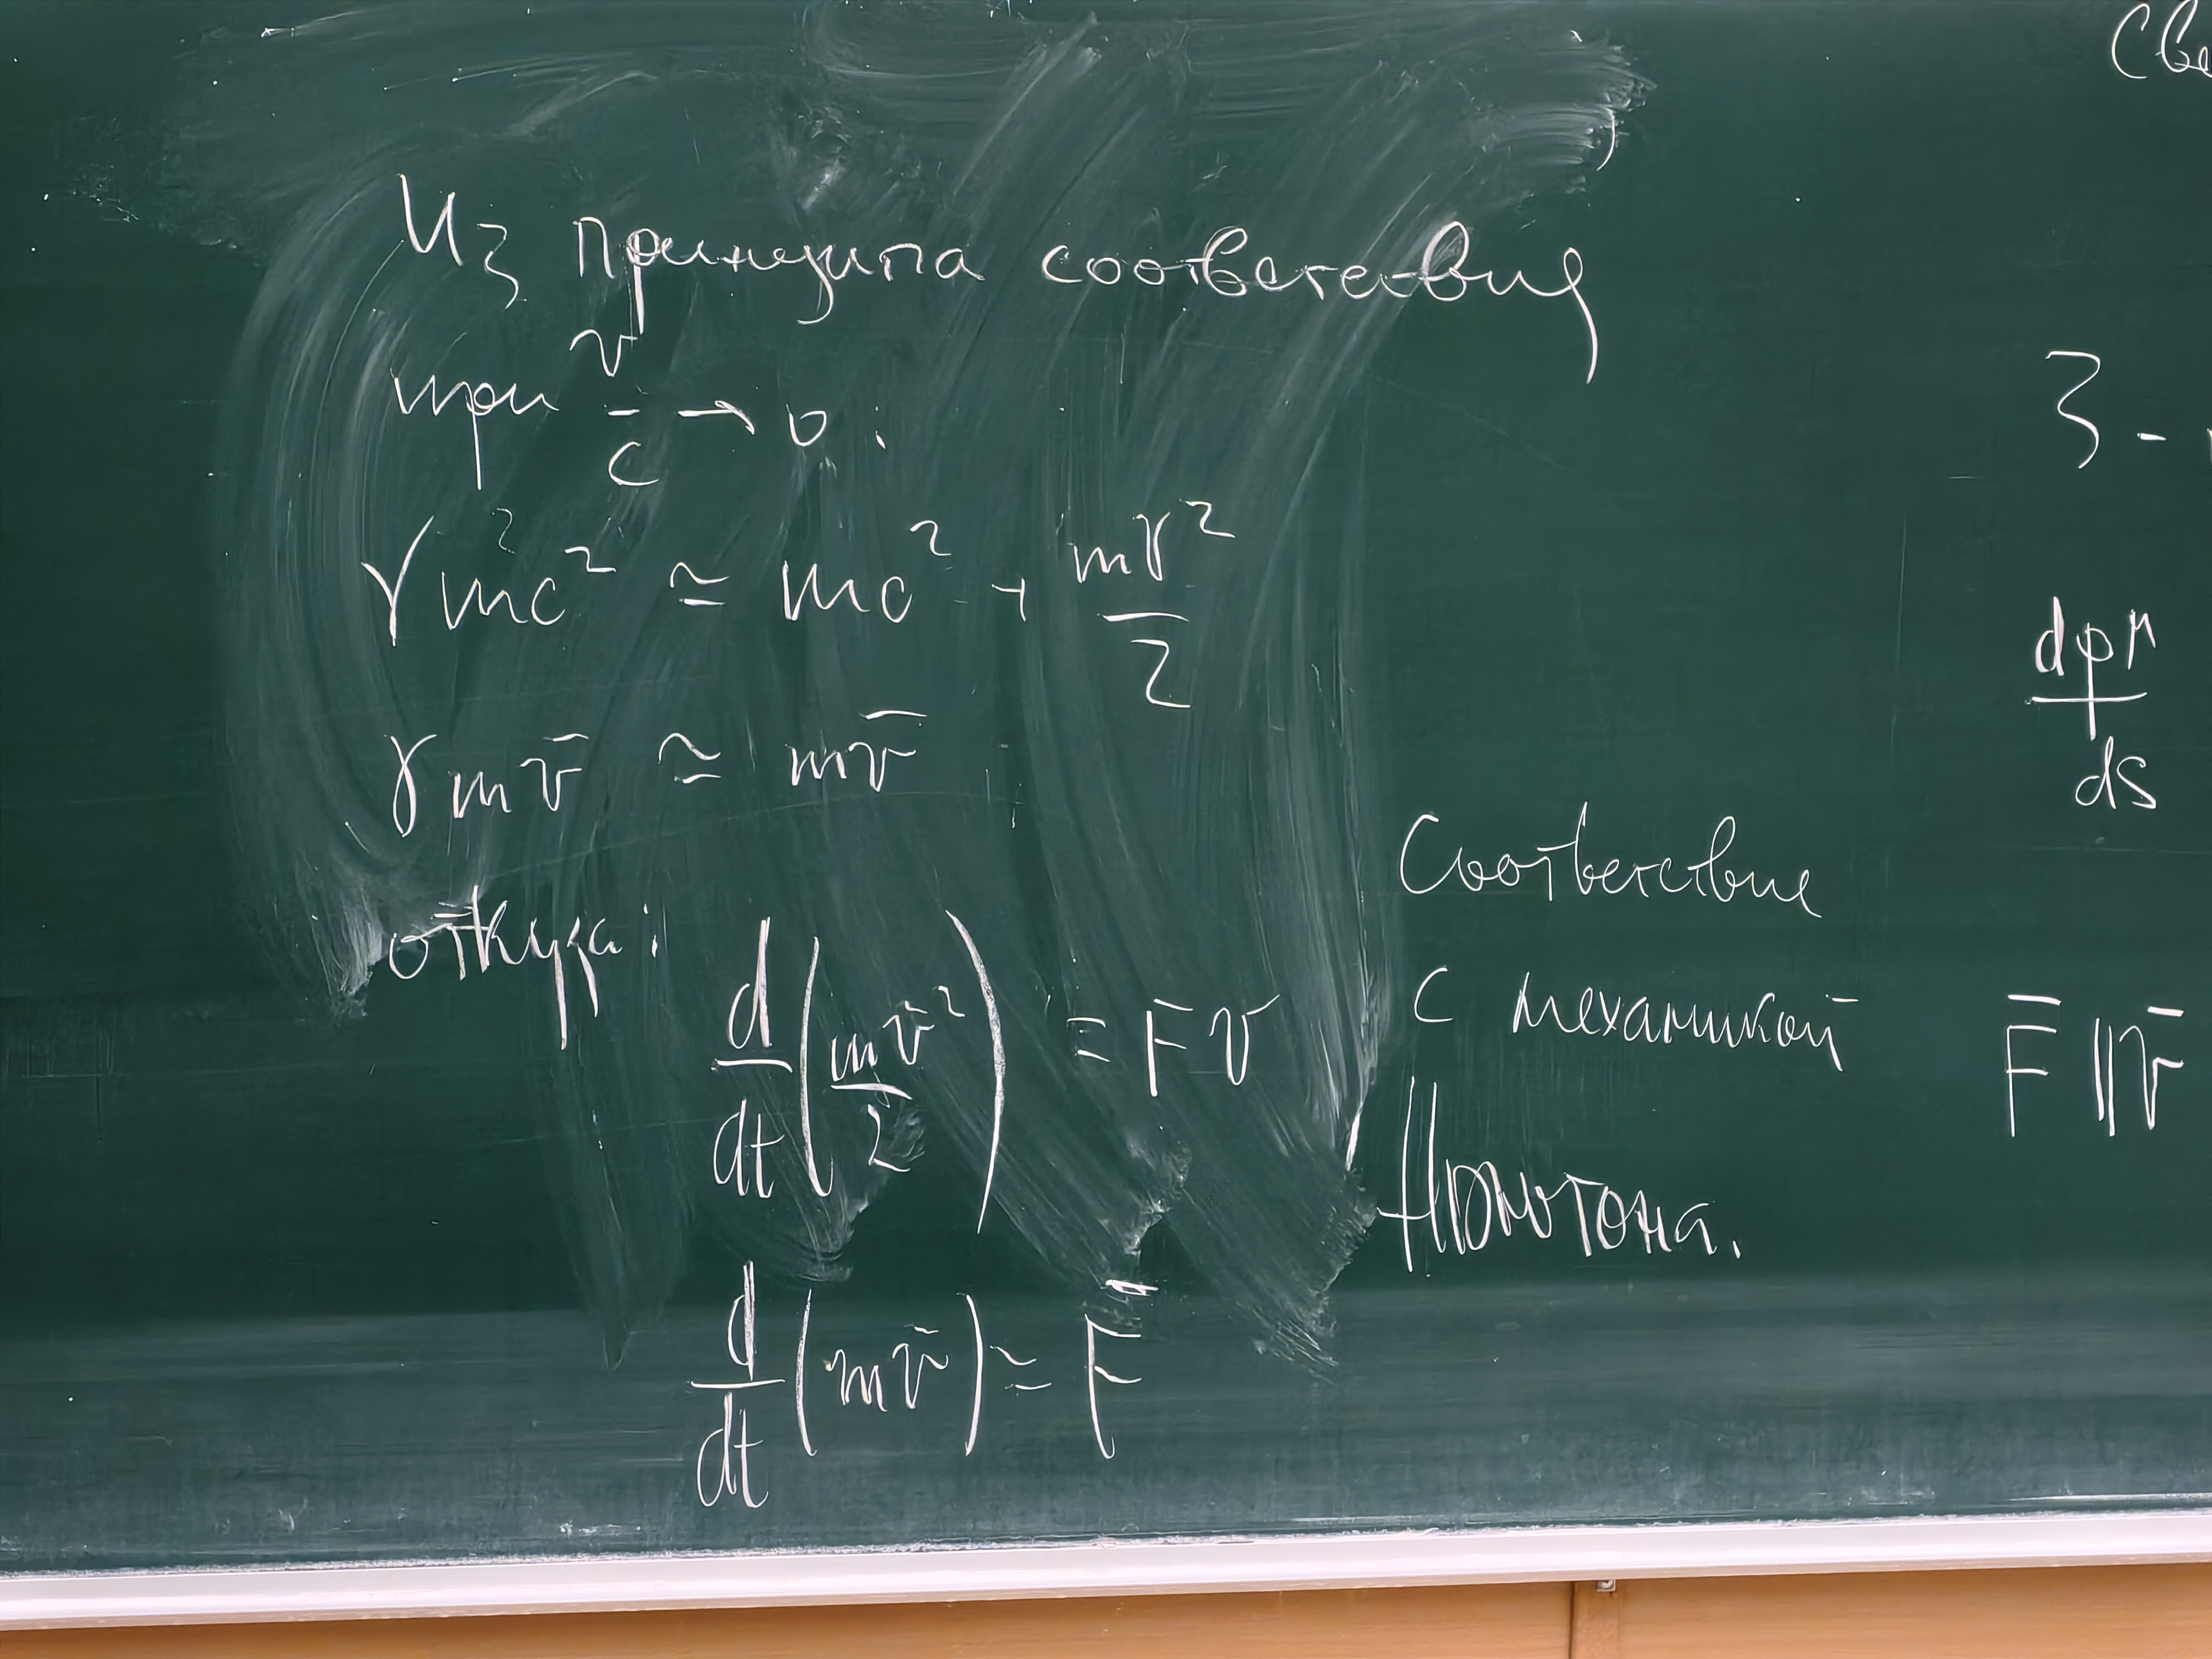 Из принципа соответствия
при v/c → 0:
γmc² ≃ mc² + mv²/2
γmv̄ ≃ mv̄
откуда:
d/dt (mv̄²/2) = Fv
d/dt (mv̄) ≃ F̄
Соответствие
с механикой
Ньютона.
Све
3 -
dpμ
ds
F̄ || v̄